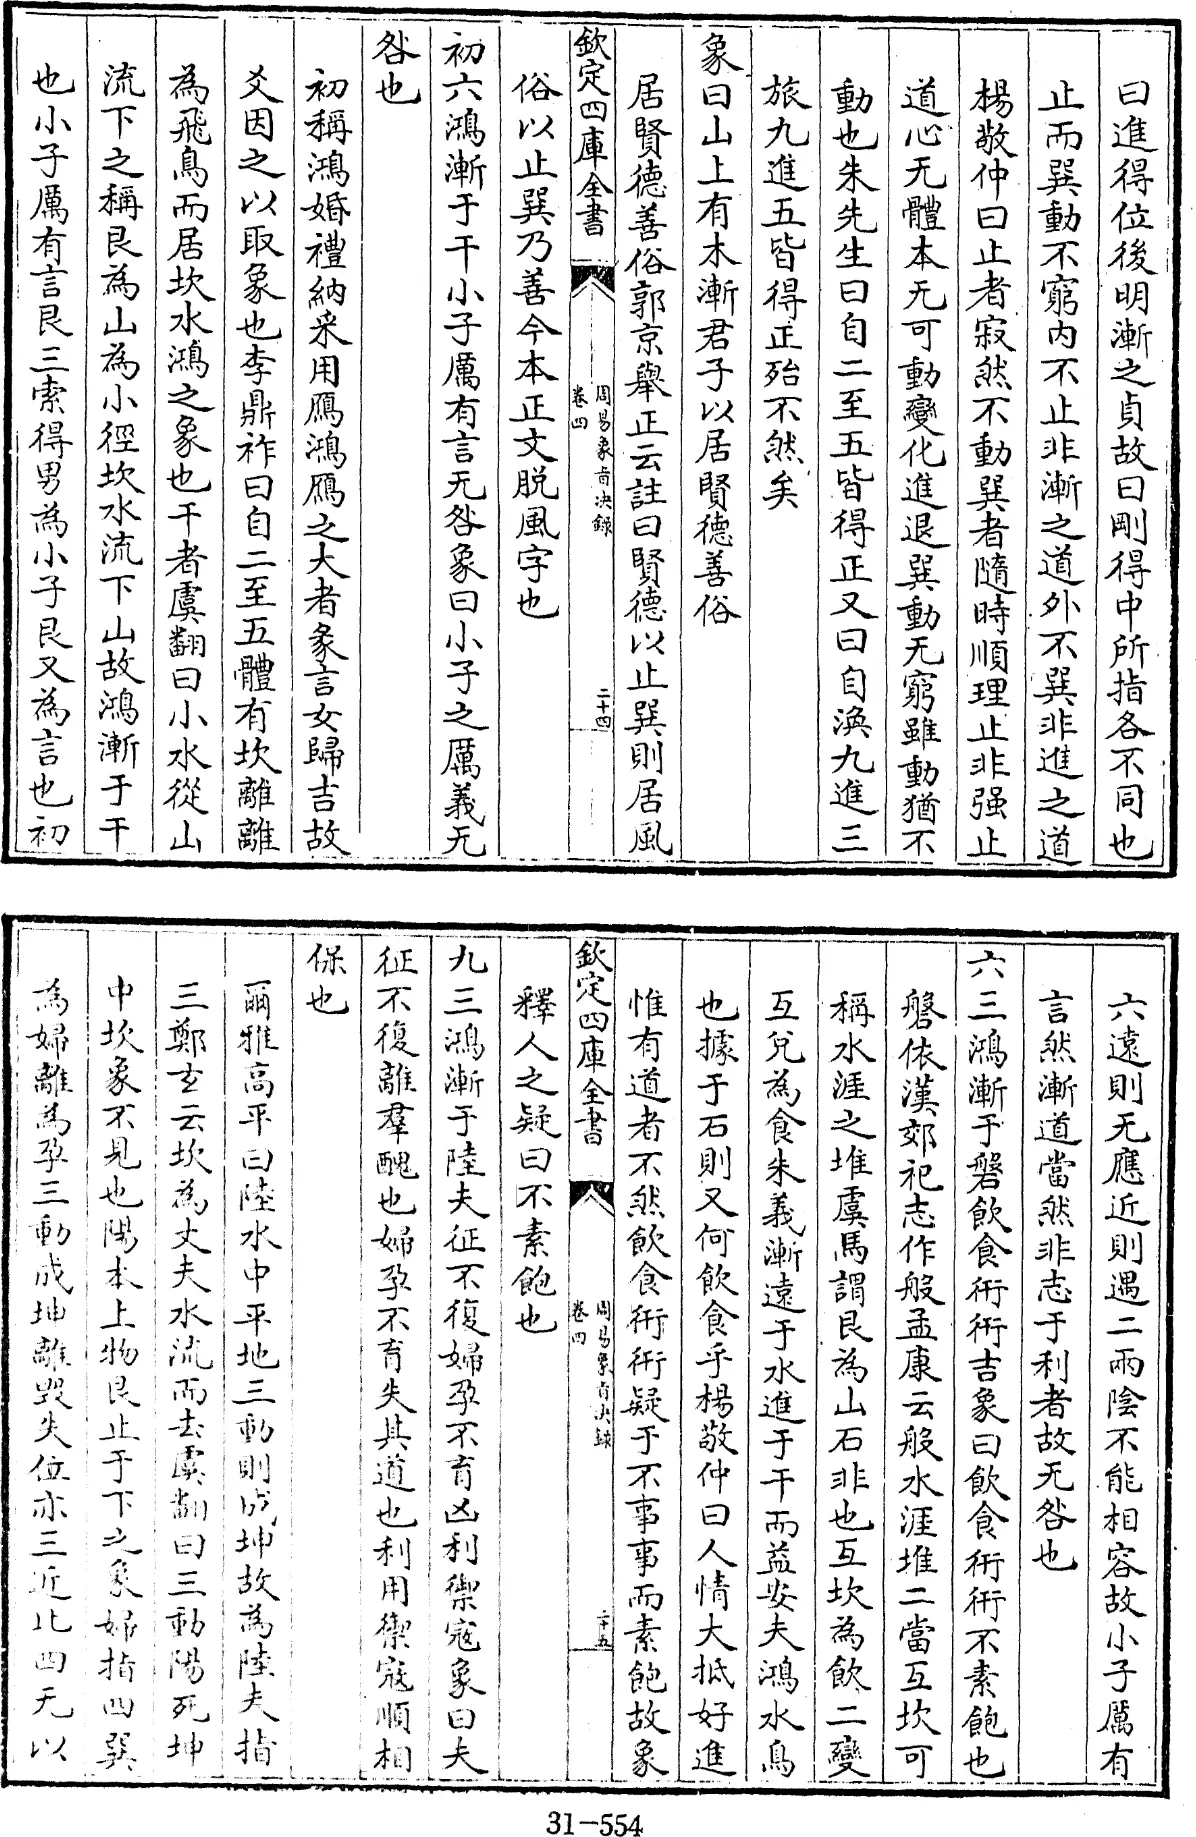 曰進得位後明漸之貞故曰剛得中所指各不同也
止而巽動不窮内不止非漸之道外不巽非進之道
楊敬仲曰止者寂然不動巽者隨時順理止非强止
道心无體本无可動變化進退巽動无窮雖動猶不
動也朱先生曰自二至五皆得正又曰自渙九進三
旅九進五皆得正殆不然矣
象曰山上有木漸君子以居賢德善俗
居賢德善俗郭京舉正云註曰賢德以止巽則居風
欽定四庫全書
周易象旨決錄
卷四
二十四
俗以止巽乃善今本正文脱風字也
初六鴻漸于干小子厲有言无咎象曰小子之厲義无
咎也
初稱鴻婚禮納采用鴈鴻鴈之大者彖言女歸吉故
爻因之以取象也李鼎祚曰自二至五體有坎離離
為飛鳥而居坎水鴻之象也干者虞翻曰小水從山
流下之稱艮為山為小徑坎水流下山故鴻漸于干
也小子厲有言艮三索得男為小子艮又為言也初
六遠則无應近則遇二兩陰不能相容故小子厲有
言然漸道當然非志于利者故无咎也
六三鴻漸于磐飲食衎衎吉象曰飲食衎衎不素飽也
磐依漢郊祀志作般孟康云般水涯堆二當互坎可
稱水涯之堆虞馬謂艮為山石非也互坎為飲二變
互兌為食朱義漸遠于水進于干而益安夫鴻水鳥
也據于石則又何飲食乎楊敬仲曰人情大抵好進
惟有道者不然飲食衎衎疑于不事事而素飽故象
欽定四庫全書
周易象旨決錄
卷四
二十五
釋人之疑曰不素飽也
九三鴻漸于陸夫征不復婦孕不育凶利禦寇象曰夫
征不復離羣醜也婦孕不育失其道也利用禦寇順相
保也
爾雅高平曰陸水中平地三動則成坤故為陸夫指
三鄭玄云坎為丈夫水流而去虞翻曰三動陽死坤
中坎象不見也陽本上物艮止于下之象婦指四巽
為婦離為孕三動成坤離毀失位亦三近比四无以
31-554